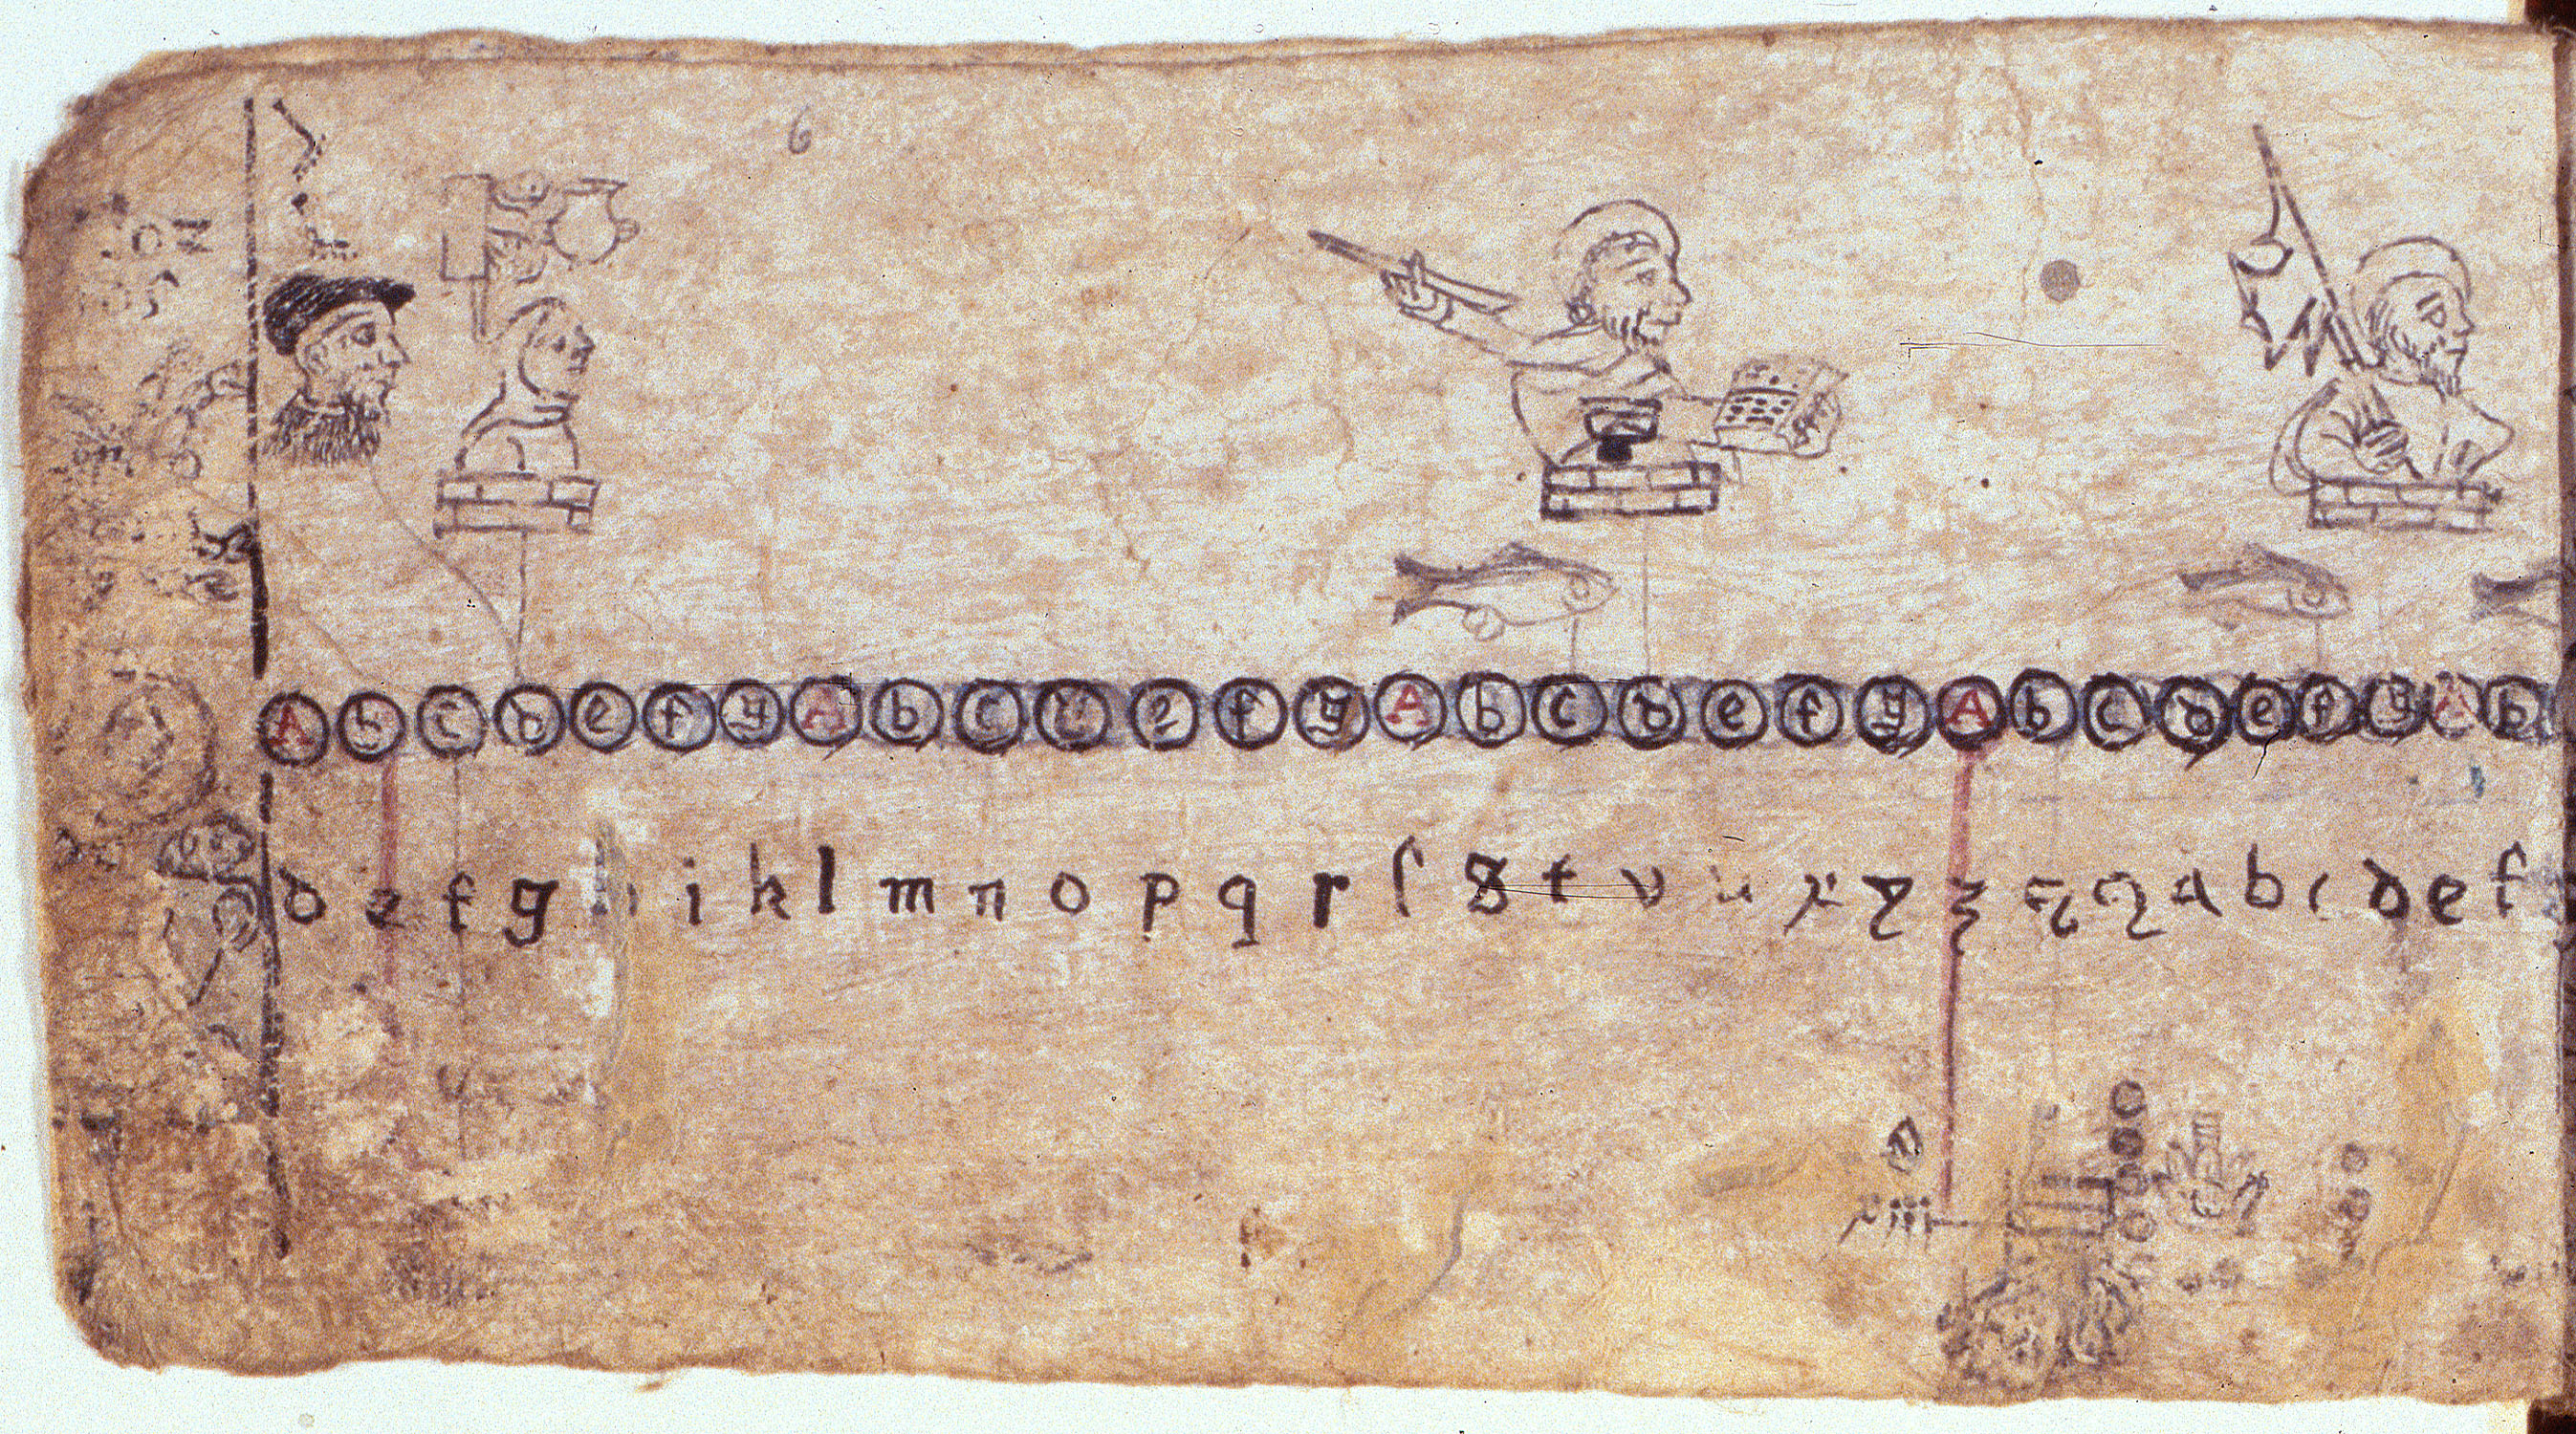 6
A b c d e f g A b c d e f g A b c d e f g A b c d e f g A b
d e f g h i k l m n o p q r ſ s t v u x y z a b c d e f